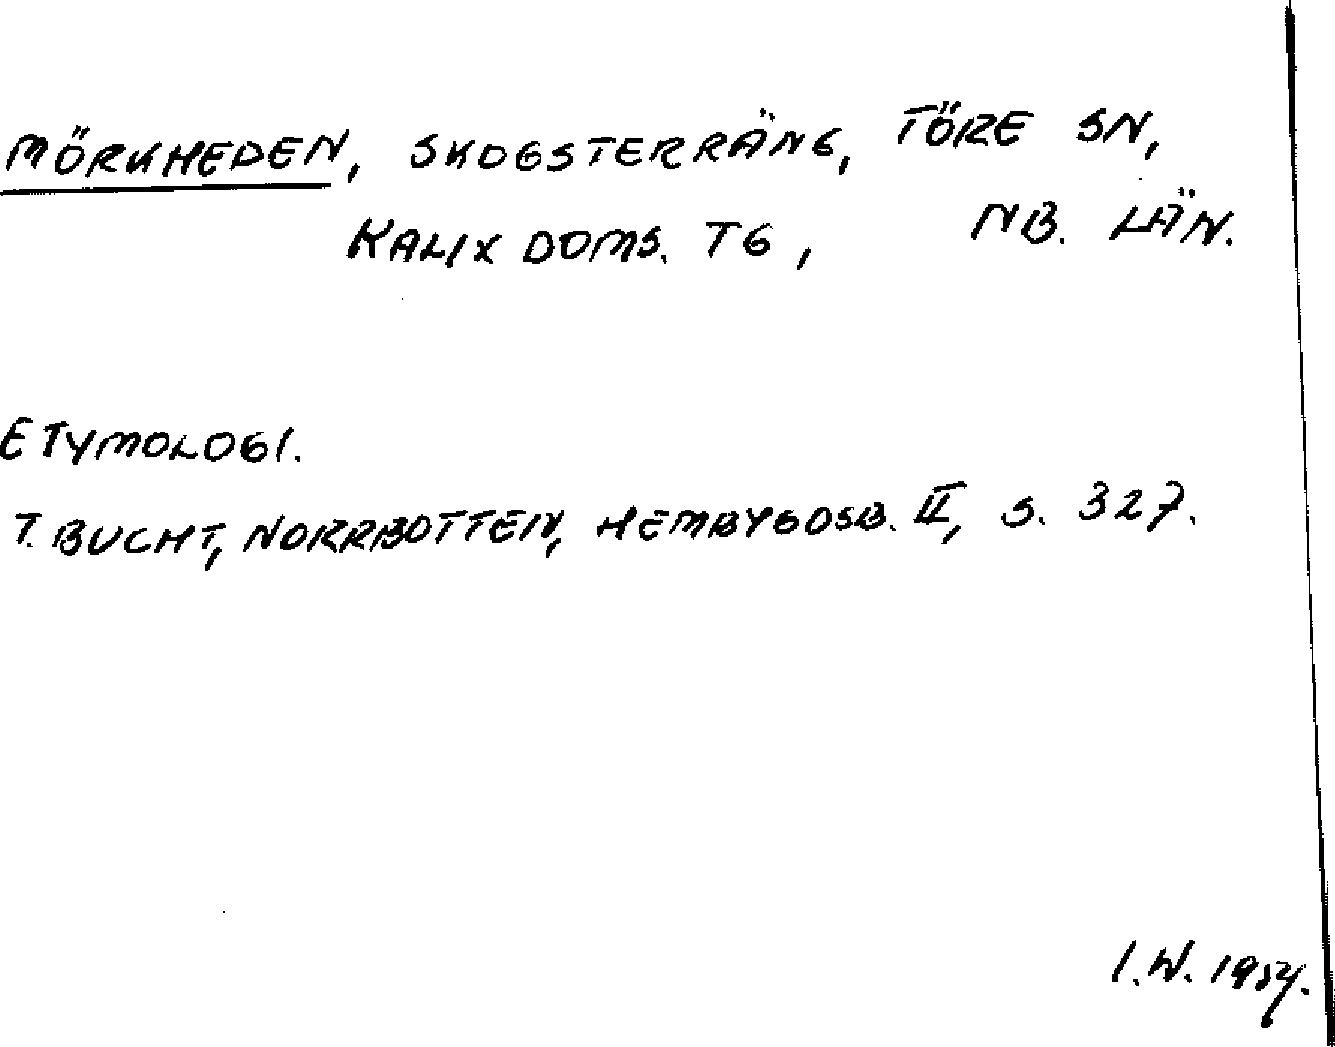 MÖRKHEDEN, SKOGSTERRÄNG, TÖRE SN,
KALIX DOMS. TG, NB. LÄN.
ETYMOLOGI.
T. BUCHT, NORRBOTTEN, HEMBYGDSB. II, S. 327.
I.W. 1954.